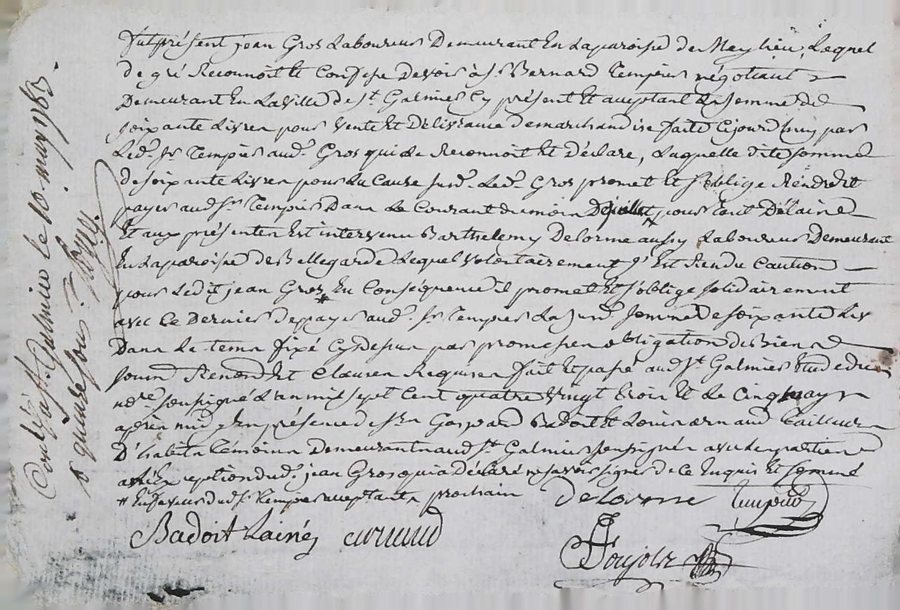 fut présent jean Gros Laboureur Demeurant En La paroisse de Meylieu, Lequel
de gré Reconnoit Et Confesse Devoir à Sr. Bernard Tempier négotiant
Demeurant En La ville de St. Galmier Cy présent Et acceptant La somme de
soixante Livres pour vente Et Délivrance de marchandise faite Cejourd'huy par
Led. Sr. Tempier aud. Gros qui Le Reconnoit Et Déclare, Laquelle dite somme
de soixante Livres pour La Cause susd. Led. Gros promet Et s'oblige Rendre Et
payer aud. Sr. Tempier Dans Le Courant du mois De juillet pour tout Délai
Et aux présentes Est intervenu Barthelemy Delorme aussy Laboureur Demeurant
En La paroisse de Bellegarde Lequel volontairement s'Est Rendu Caution
pour Ledit jean Gros En Conséquence il promet Et s'oblige solidairement
avec Ce Dernier de payer aud. Sr. Tempier La susd. somme de soixante Livres
Dans Le terme fixé Cy dessus par promesses obligation De Biens
soumis Renon. Et Clauses Requises fait Et passé aud. St. Galmier Etude du
nore. soussigné L'an mil sept Cent quatre vingt trois Et Le Cinq may
après midy En présence de Sr. Gaspard Badoit Et Louis arnaud Tailleur
D'habits témoins Demeurant aud. St. Galmier soussignés avec Les parties
à L'Exception dud. jean Gros qui a Déclaré ne savoir signer de Ce Enquis Et sommé
# En faveur dud. Sr. Tempier acceptant x prochain
Delorme Tempier
Badoit Lainé arnaud
Poujolz
Conlé à St. Galmier le 16. may 1783.
quinze sous